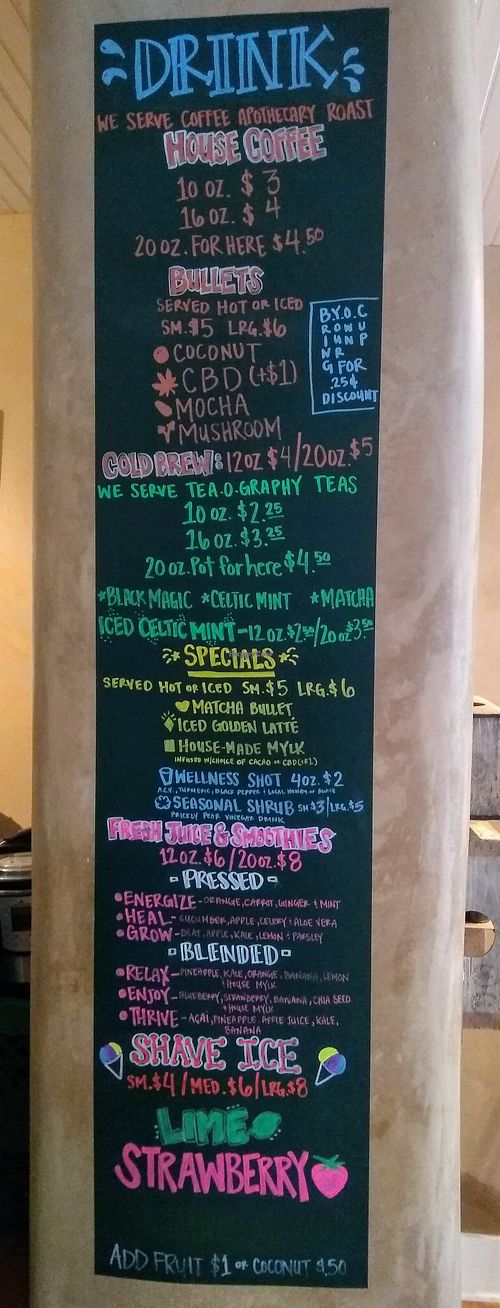 DRINK
WE SERVE COFFEE APOTHECARY ROAST
HOUSE COFFEE
10 OZ. $3
16 OZ. $4
20 OZ. FOR HERE $4.50
BULLETS
SERVED HOT OR ICED
SM. $5 LRG. $6
COCONUT
CBD (+$1)
MOCHA
MUSHROOM
B.Y.O.C
R O W U
I U N P
N R
G FOR
.25¢
DISCOUNT
COLD BREW: 12OZ $4/20OZ. $5
WE SERVE TEA-O-GRAPHY TEAS
10 OZ. $2.25
16 OZ. $3.25
20 OZ. Pot for here $4.50
*BLACK MAGIC *CELTIC MINT *MATCHA
ICED CELTIC MINT-12 OZ. $2.50/20 OZ. $3.50
SPECIALS
SERVED HOT OR ICED SM. $5 LRG. $6
MATCHA BULLET
ICED GOLDEN LATTE
HOUSE-MADE MYLK
INFUSED W/CHOICE OF CACAO OR CBD(+$1)
WELLNESS SHOT 4OZ. $2
A.C.V., TURMERIC, BLACK PEPPER + LOCAL HONEY OR AGAVE
SEASONAL SHRUB SM $3/LRG. $5
PRICKLY PEAR VINEGAR DRINK
FRESH JUICE & SMOOTHIES
12 OZ. $6/20OZ. $8
PRESSED
ENERGIZE-ORANGE, CARROT, GINGER + MINT
HEAL-CUCUMBER, APPLE, CELERY + ALOE VERA
GROW-BEAT, APPLE, KALE, LEMON + PARSLEY
BLENDED
RELAX-PINEAPPLE, KALE, ORANGE, BANANA, LEMON
+ HOUSE MYLK
ENJOY-BLUEBERRY, STRAWBERRY, BANANA, CHIA SEED
+ HOUSE MYLK
THRIVE-AÇAI, PINEAPPLE, APPLE JUICE, KALE,
BANANA
SHAVE ICE
SM. $4/MED. $6/LRG. $8
LIME
STRAWBERRY
ADD FRUIT $1 OR COCONUT $.50